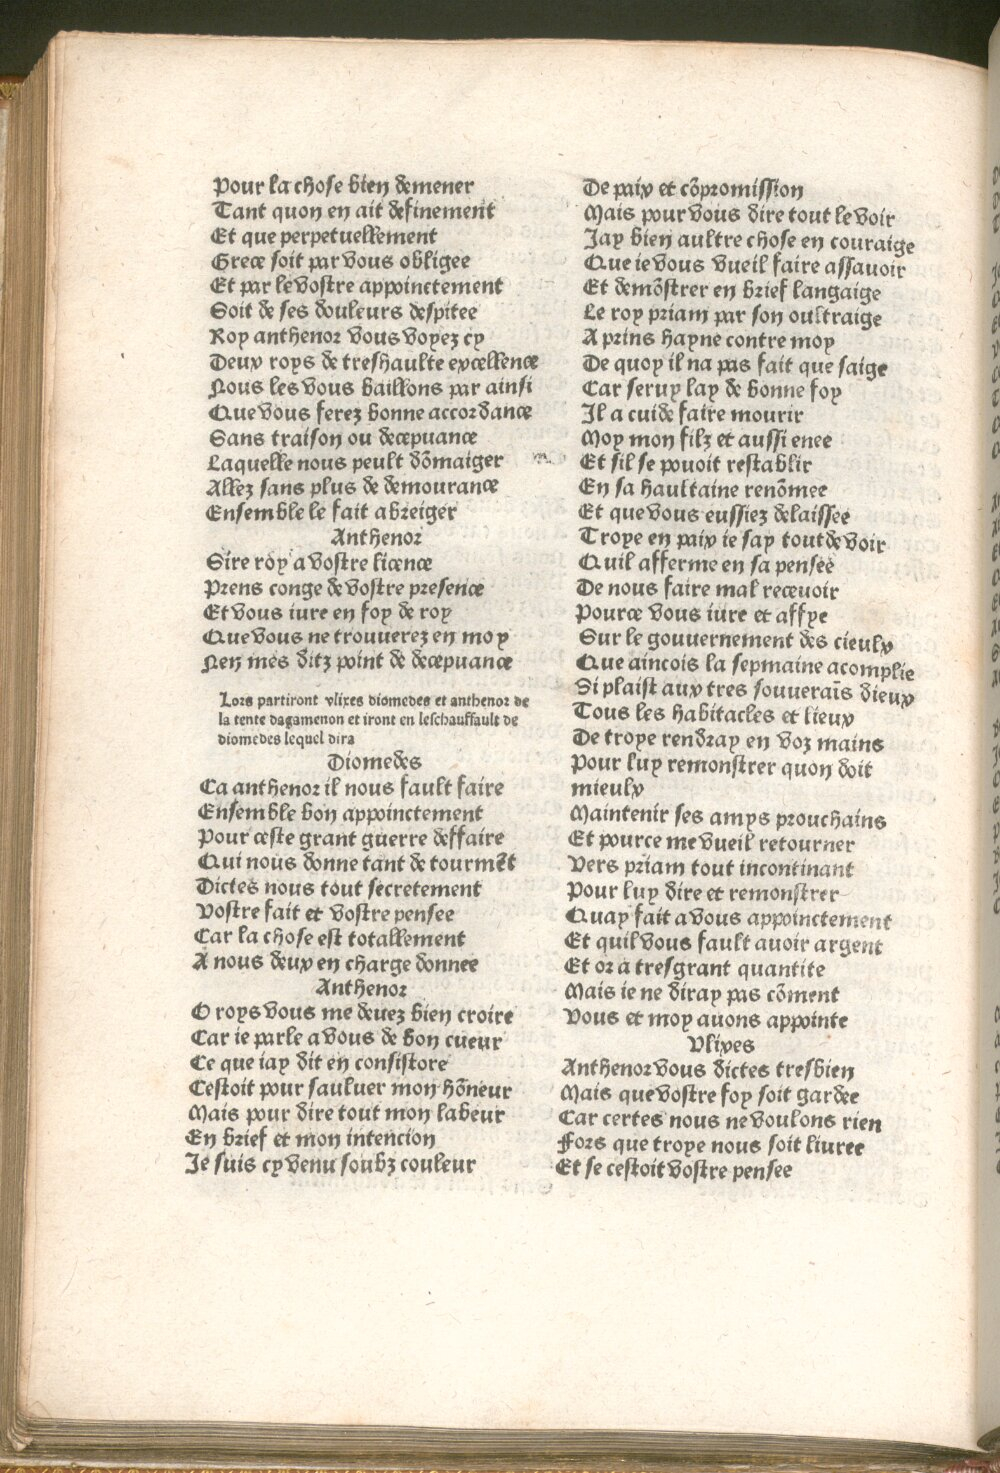 Pour la chose bien demener
Tant quon en ait definement
Et que perpetuellement
Grece soit par vous obligee
Et par le vostre appoinctement
Soit de ses douleurs despitee
Roy anthenor vous voyez cy
Deux roys de treshaulte excellence
Nous les vous baillons par ainsi
Que vous ferez bonne accordance
Sans traison ou decepuance
Laquelle nous peult dõmaiger
Allez sans plus de demourance
Ensemble le fait abreiger
Anthenor
Sire roy a vostre licence
Prens conge de vostre presence
Et vous iure en foy de roy
Que vous ne trouuerez en moy
Nen mes ditz point de decepuance
Lors partiront vlixes diomedes et anthenor de
la tente dagamenon et iront en leschauffault de
diomedes lequel dira
Diomedes
Ca anthenor il nous fault faire
Ensemble bon appoinctement
Pour ceste grant guerre deffaire
Qui nous donne tant de tourmẽt
Dictes nous tout secretement
Vostre fait et vostre pensee
Car la chose est totallement
A nous deux en charge donnee
Anthenor
O roys vous me deuez bien croire
Car ie parle a vous de bon cueur
Ce que iay dit en consistore
Cestoit pour sauluer mon hõneur
Mais pour dire tout mon labeur
En brief et mon intencion
Je suis cy venu soubz couleur
De paix et cõpromission
Mais pour vous dire tout le voir
Jay bien aultre chose en couraige
Que ie vous vueil faire assauoir
Et demõstrer en brief langaige
Le roy priam par son oultraige
A prins hayne contre moy
De quoy il na pas fait que saige
Car seruy lay de bonne foy
Il a cuide faire mourir
Moy mon filz et aussi enee
Et sil se pouoit restablir
En sa haultaine renõmee
Et que vous eussiez delaissee
Troye en paix ie say tout de voir
Quil afferme en sa pensee
De nous faire mal receuoir
Pource vous iure et affye
Sur le gouuernement des cieulx
Que aincois la sepmaine acomplie
Si plaist aux tres souuerais̃ dieux
Tous les habitacles et lieux
De troye rendray en voz mains
Pour luy remonstrer quon doit
mieulx
Maintenir ses amys prouchains
Et pource me vueil retourner
Vers priam tout incontinant
Pour luy dire et remonstrer
Quay fait a vous appoinctement
Et quil vous fault auoir argent
Et or a tresgrant quantite
Mais ie ne diray pas cõment
Vous et moy auons appointe
Vlixes
Anthenor vous dictes tresbien
Mais que vostre foy soit gardee
Car certes nous ne voulons rien
Fors que troye nous soit liuree
Et se cestoit vostre pensee